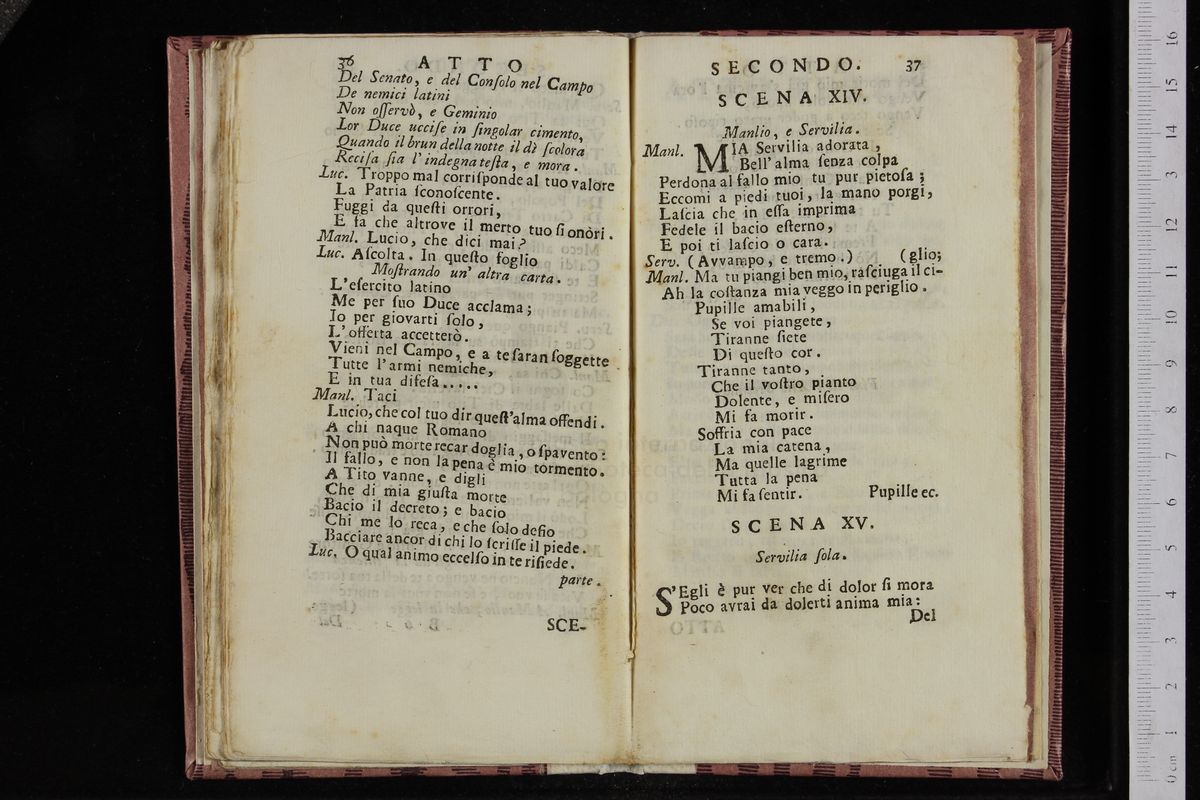 36 ATTO
Del Senato, e del Conſolo nel Campo
De nemici latini
Non oſſervò, e Geminio
Lor Duce ucciſe in ſingolar cimento,
Quando il brun della notte il dì ſcolora
Reciſa ſia l'indegna teſta, e mora.
Luc. Troppo mal corriſponde al tuo valore
La Patria ſconoſcente.
Fuggi da queſti orrori,
E fa che altrove il merto tuo ſi onòri.
Manl. Lucio, che dici mai?
Luc. Aſcolta. In queſto foglio
Moſtrando un' altra carta.
L'eſercito latino
Me per ſuo Duce acclama;
Io per giovarti ſolo,
L'offerta accetterò.
Vieni nel Campo, e a te ſaran ſoggette
Tutte l'armi nemiche,
E in tua difeſa.....
Manl. Taci
Lucio, che col tuo dir queſt'alma offendi.
A chi naque Romano
Non può morte recar doglia, o ſpavento:
Il fallo, e non la pena è mio tormento.
A Tito vanne, e digli
Che di mia giuſta morte
Bacio il decreto; e bacio
Chi me lo reca, e che ſolo deſio
Bacciare ancor di chi lo ſcriſſe il piede.
Luc. O qual animo eccelſo in te riſiede.
parte.
SCE-
SECONDO. 37
SCENA XIV.
Manlio, e Servilia.
Manl. MIA Servilia adorata,
Bell' alma ſenza colpa
Perdona al fallo mio tu pur pietoſa;
Eccomi a piedi tuoi, la mano porgi,
Laſcia che in eſſa imprima
Fedele il bacio eſterno,
E poi ti laſcio o cara.
Serv. (Avvampo, e tremo.) (glio;
Manl. Ma tu piangi ben mio, raſciuga il ci-
Ah la coſtanza mia veggo in periglio.
Pupille amabili,
Se voi piangete,
Tiranne ſiete
Di queſto cor.
Tiranne tanto,
Che il voſtro pianto
Dolente, e miſero
Mi fa morir.
Soffria con pace
La mia catena,
Ma quelle lagrime
Tutta la pena
Mi fa ſentir. Pupille ec.
SCENA XV.
Servilia ſola.
S'Egli è pur ver che di dolor ſi mora
Poco avrai da dolerti anima mia:
Del